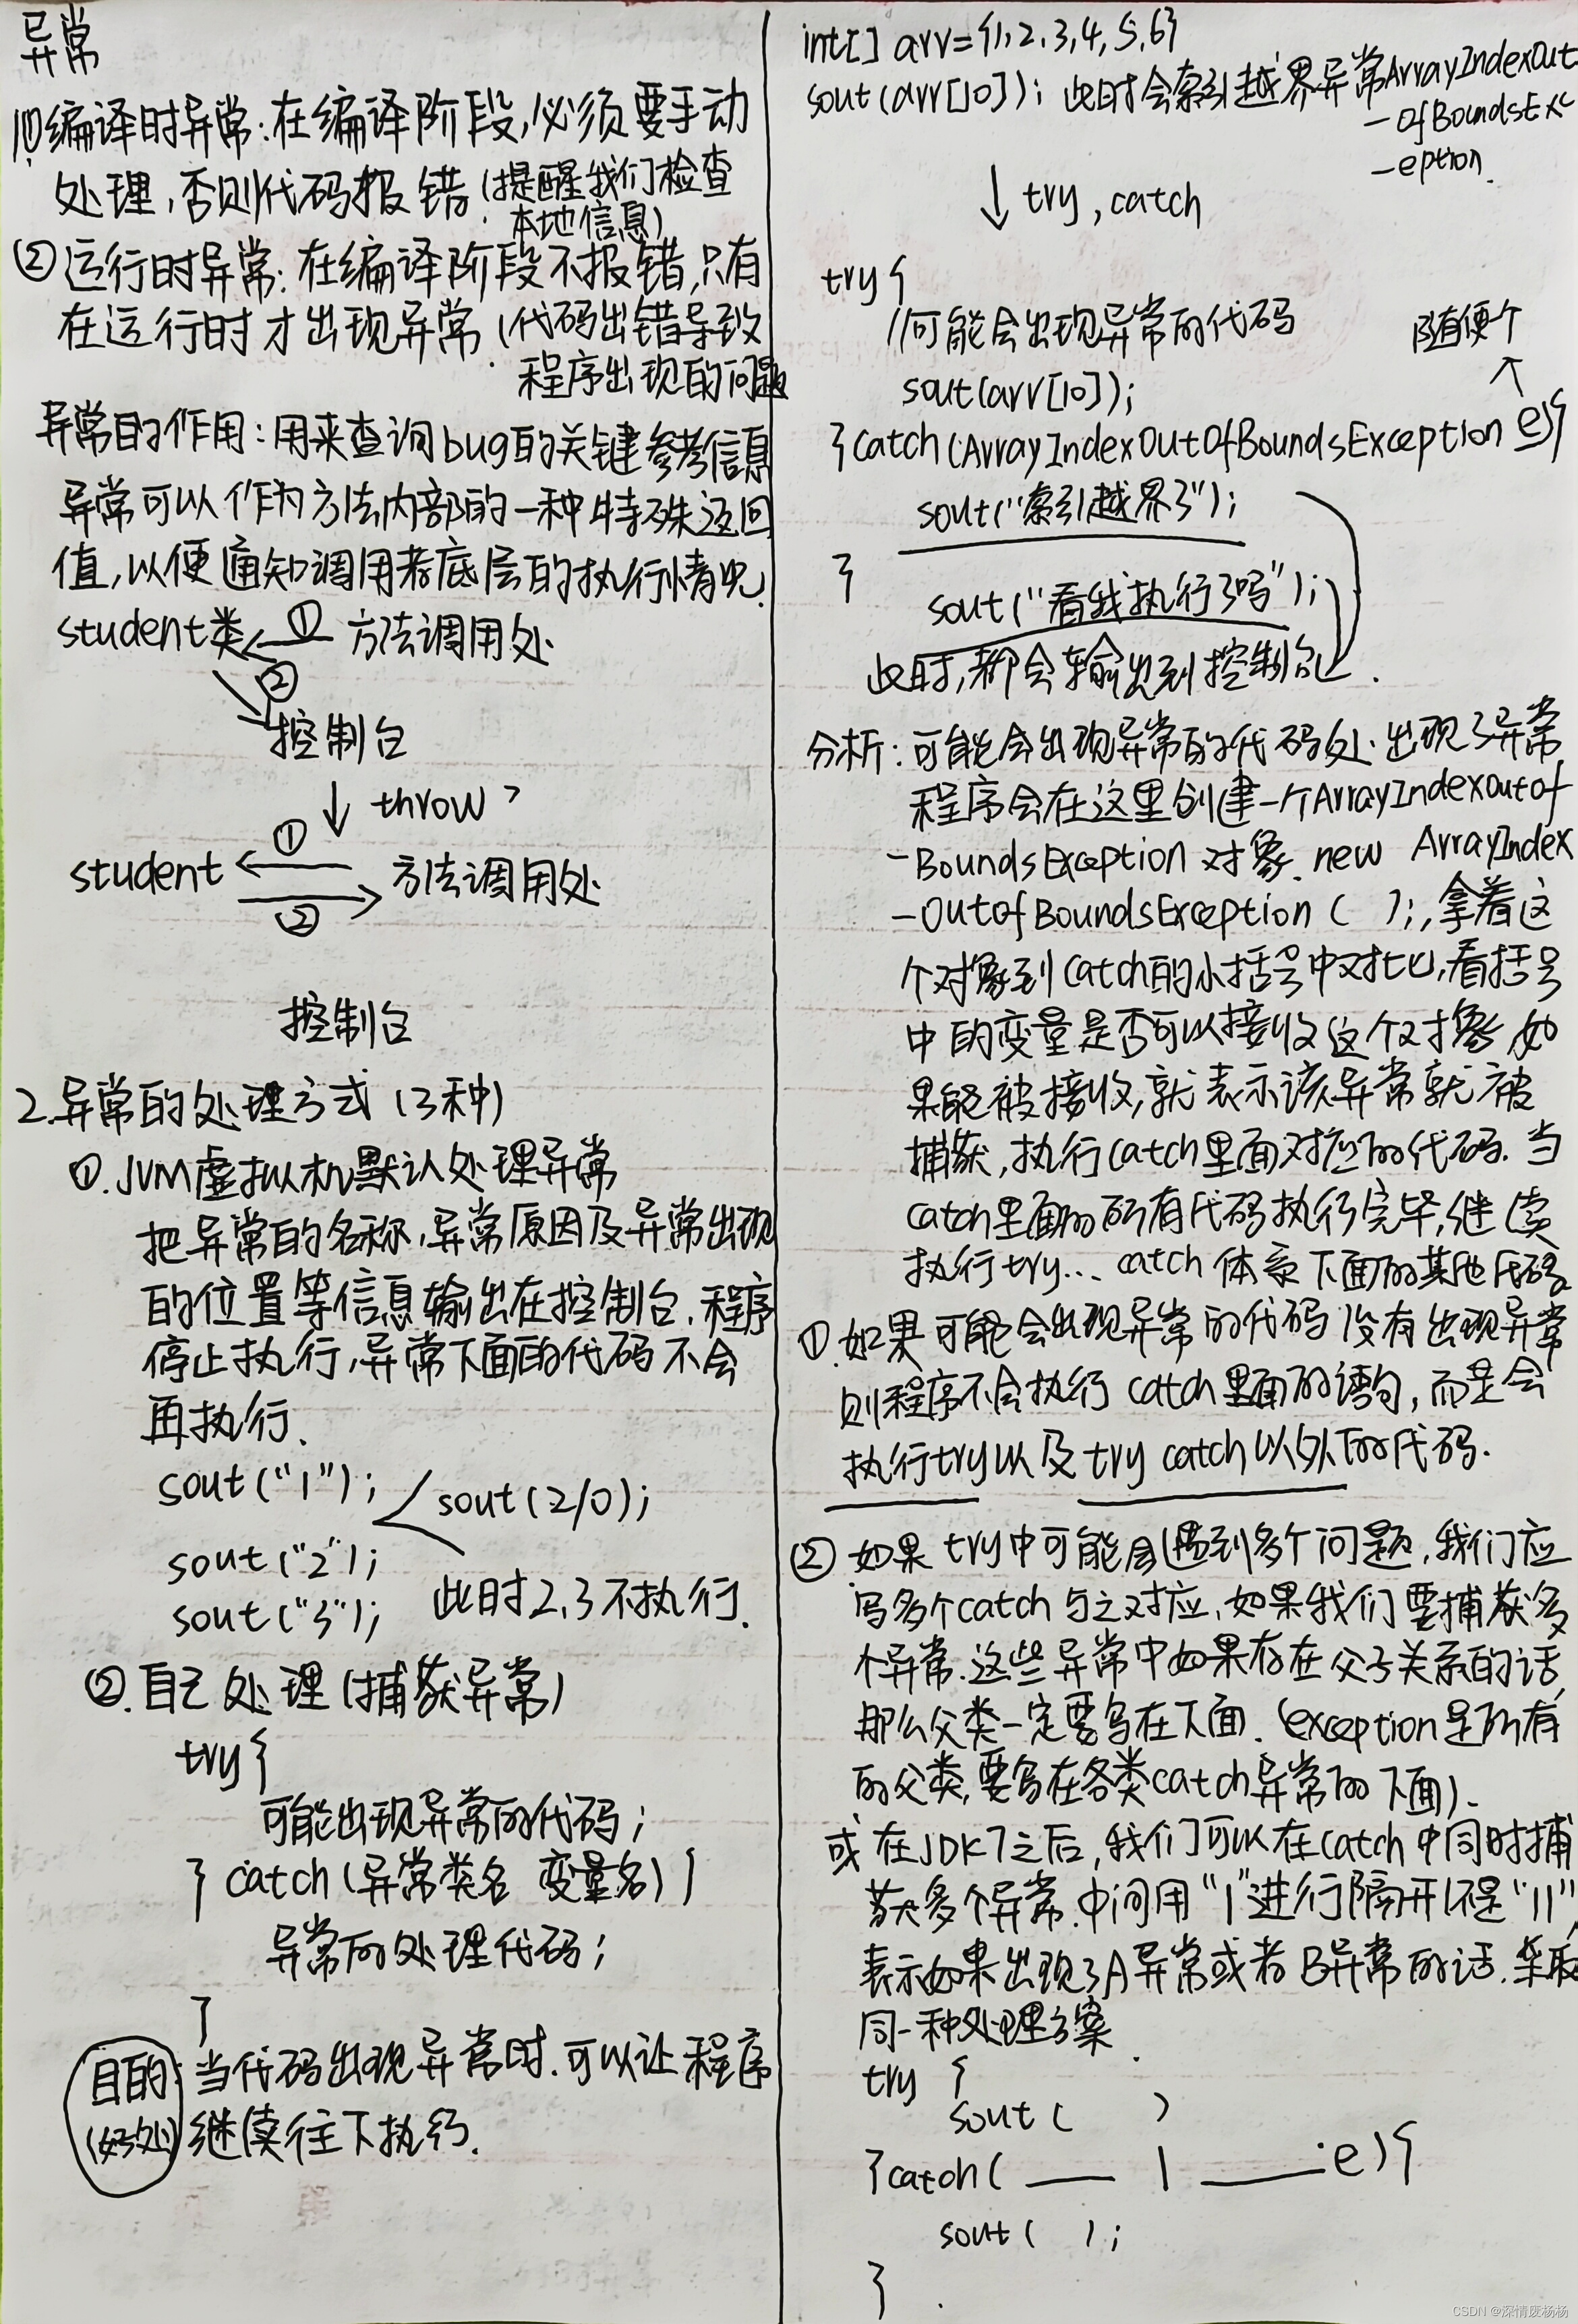 异常
1.①编译时异常:在编译阶段,必须要手动
处理,否则代码报错.(提醒我们检查
本地信息)
②运行时异常:在编译阶段不报错,只有
在运行时才出现异常.(代码出错导致
程序出现的问题
异常的作用:用来查询bug的关键参考信息
异常可以作为方法内部的一种特殊返回
值,以便通知调用者底层的执行情况.
student类 ← ① 方法调用处
②
控制台
↓ throw
①
student ← 方法调用处
→ ②
控制台
2.异常的处理方式(3种)
①.JVM虚拟机默认处理异常
把异常的名称,异常原因及异常出现
的位置等信息输出在控制台.程序
停止执行,异常下面的代码不会
再执行.
sout("1"); sout(2/0);
sout("2");
sout("3"); 此时2,3不执行.
②.自己处理(捕获异常)
try{
可能出现异常的代码;
} catch(异常类名 变量名){
异常的处理代码;
}
目的: 当代码出现异常时.可以让程序
(好处) 继续往下执行.
int[] arr={1,2,3,4,5,6}
sout(arr[10]); 此时会索引越界异常ArrayIndexOut
-OfBoundsExc
-eption.
↓ try,catch
try{
//可能会出现异常的代码
随便个
↑
sout(arr[10]);
}catch(ArrayIndexOutOfBoundsException e){
sout("索引越界了");
}
sout("看我执行了吗");
此时,都会输出到控制台.
分析:可能会出现异常的代码处.出现了异常
程序会在这里创建一个ArrayIndexOutof
-BoundsException 对象.new ArrayIndex
-OutofBoundsException ( );,拿着这
个对象到catch的小括号中对比,看括号
中的变量是否可以接收这个对象,如
果能被接收,就表示该异常就被
捕获,执行catch里面对应的代码.当
catch里面的所有代码执行完毕,继续
执行try... catch 体系下面的其他代码
①.如果可能会出现异常的代码没有出现异常
则程序不会执行catch里面的语句,而是会
执行try以及try catch以外下的代码.
② 如果try中可能会遇到多个问题,我们应
写多个catch与之对应.如果我们要捕获多
个异常.这些异常中如果存在父子关系的话,
那么父类一定要写在下面.(exception是所有
的父类,要写在各类catch异常的下面).
或在JDK7之后,我们可以在catch中同时捕
获多个异常.中间用"|"进行隔开(不是"||"
表示如果出现了A异常或者B异常的话.采取
同一种处理方案.
try {
sout( )
}catch( ___ | ___ e){
sout( );
}
CSDN @深情废杨杨